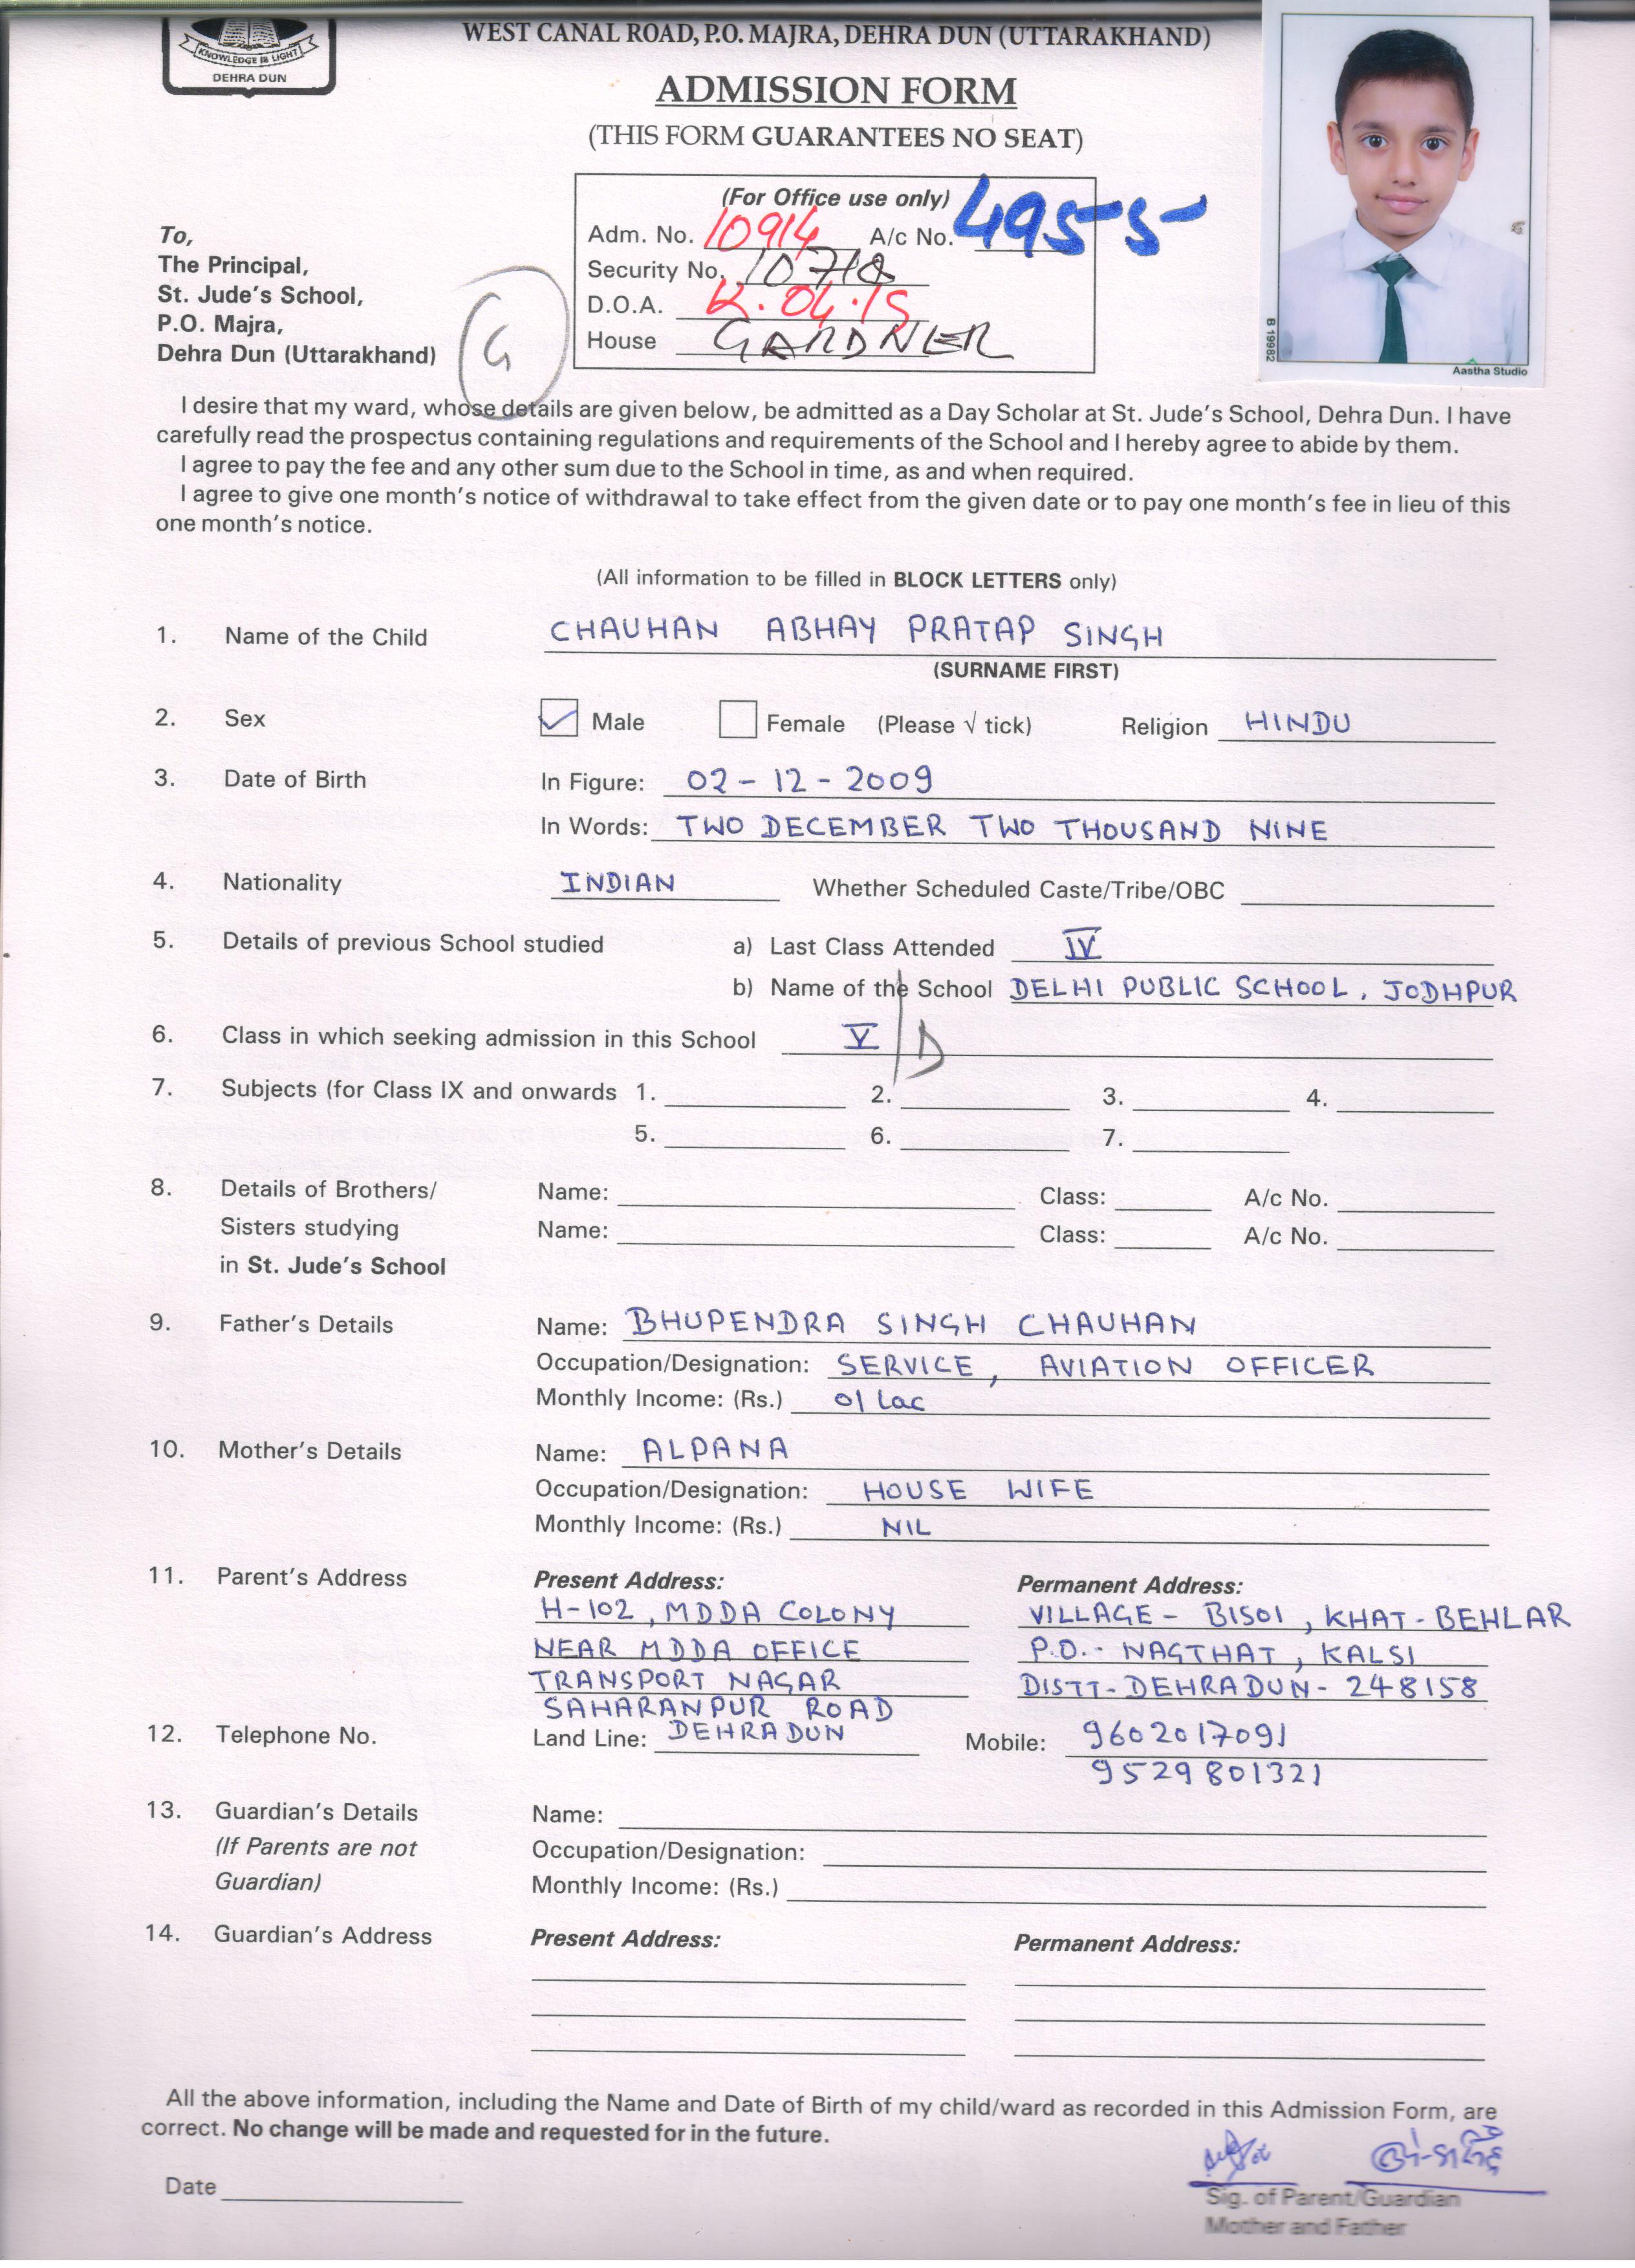 KNOWLEDGE IS LIGHT
DEHRA DUN
WEST CANAL ROAD, P.O. MAJRA, DEHRA DUN (UTTARAKHAND)
ADMISSION FORM
(THIS FORM GUARANTEES NO SEAT)
(For Office use only)
Adm. No. 10914 A/c No. 4955-
Security No.
D.O.A.
House GARDNER
To,
The Principal,
St. Jude's School,
P.O. Majra,
Dehra Dun (Uttarakhand)
G
B 19982
Aastha Studio
I desire that my ward, whose details are given below, be admitted as a Day Scholar at St. Jude's School, Dehra Dun. I have
carefully read the prospectus containing regulations and requirements of the School and I hereby agree to abide by them.
I agree to pay the fee and any other sum due to the School in time, as and when required.
I agree to give one month's notice of withdrawal to take effect from the given date or to pay one month's fee in lieu of this
one month's notice.
(All information to be filled in BLOCK LETTERS only)
1. Name of the Child CHAUHAN ABHAY PRATAP SINGH
(SURNAME FIRST)
2. Sex ✓ Male Female (Please √ tick) Religion HINDU
3. Date of Birth In Figure: 02-12-2009
In Words: TWO DECEMBER TWO THOUSAND NINE
4. Nationality INDIAN Whether Scheduled Caste/Tribe/OBC
5. Details of previous School studied a) Last Class Attended IV
b) Name of the School DELHI PUBLIC SCHOOL, JODHPUR
6. Class in which seeking admission in this School V/D
7. Subjects (for Class IX and onwards 1. 2. 3. 4.
5. 6. 7.
8. Details of Brothers/ Name: Class: A/c No.
Sisters studying Name: Class: A/c No.
in St. Jude's School
9. Father's Details Name: BHUPENDRA SINGH CHAUHAN
Occupation/Designation: SERVICE, AVIATION OFFICER
Monthly Income: (Rs.) 01 Lac
10. Mother's Details Name: ALPANA
Occupation/Designation: HOUSE WIFE
Monthly Income: (Rs.) NIL
11. Parent's Address Present Address: Permanent Address:
H-102, MDDA COLONY VILLAGE - BISOI, KHAT-BEHLAR
NEAR MDDA OFFICE P.O.- NAGTHAT, KALSI
TRANSPORT NAGAR DISTT-DEHRADUN-248158
SAHARANPUR ROAD
12. Telephone No. Land Line: DEHRADUN Mobile: 9602017091
9529801321
13. Guardian's Details Name:
(If Parents are not Occupation/Designation:
Guardian) Monthly Income: (Rs.)
14. Guardian's Address Present Address: Permanent Address:
All the above information, including the Name and Date of Birth of my child/ward as recorded in this Admission Form, are
correct. No change will be made and requested for in the future.
Date
Sig. of Parent/Guardian
Mother and Father